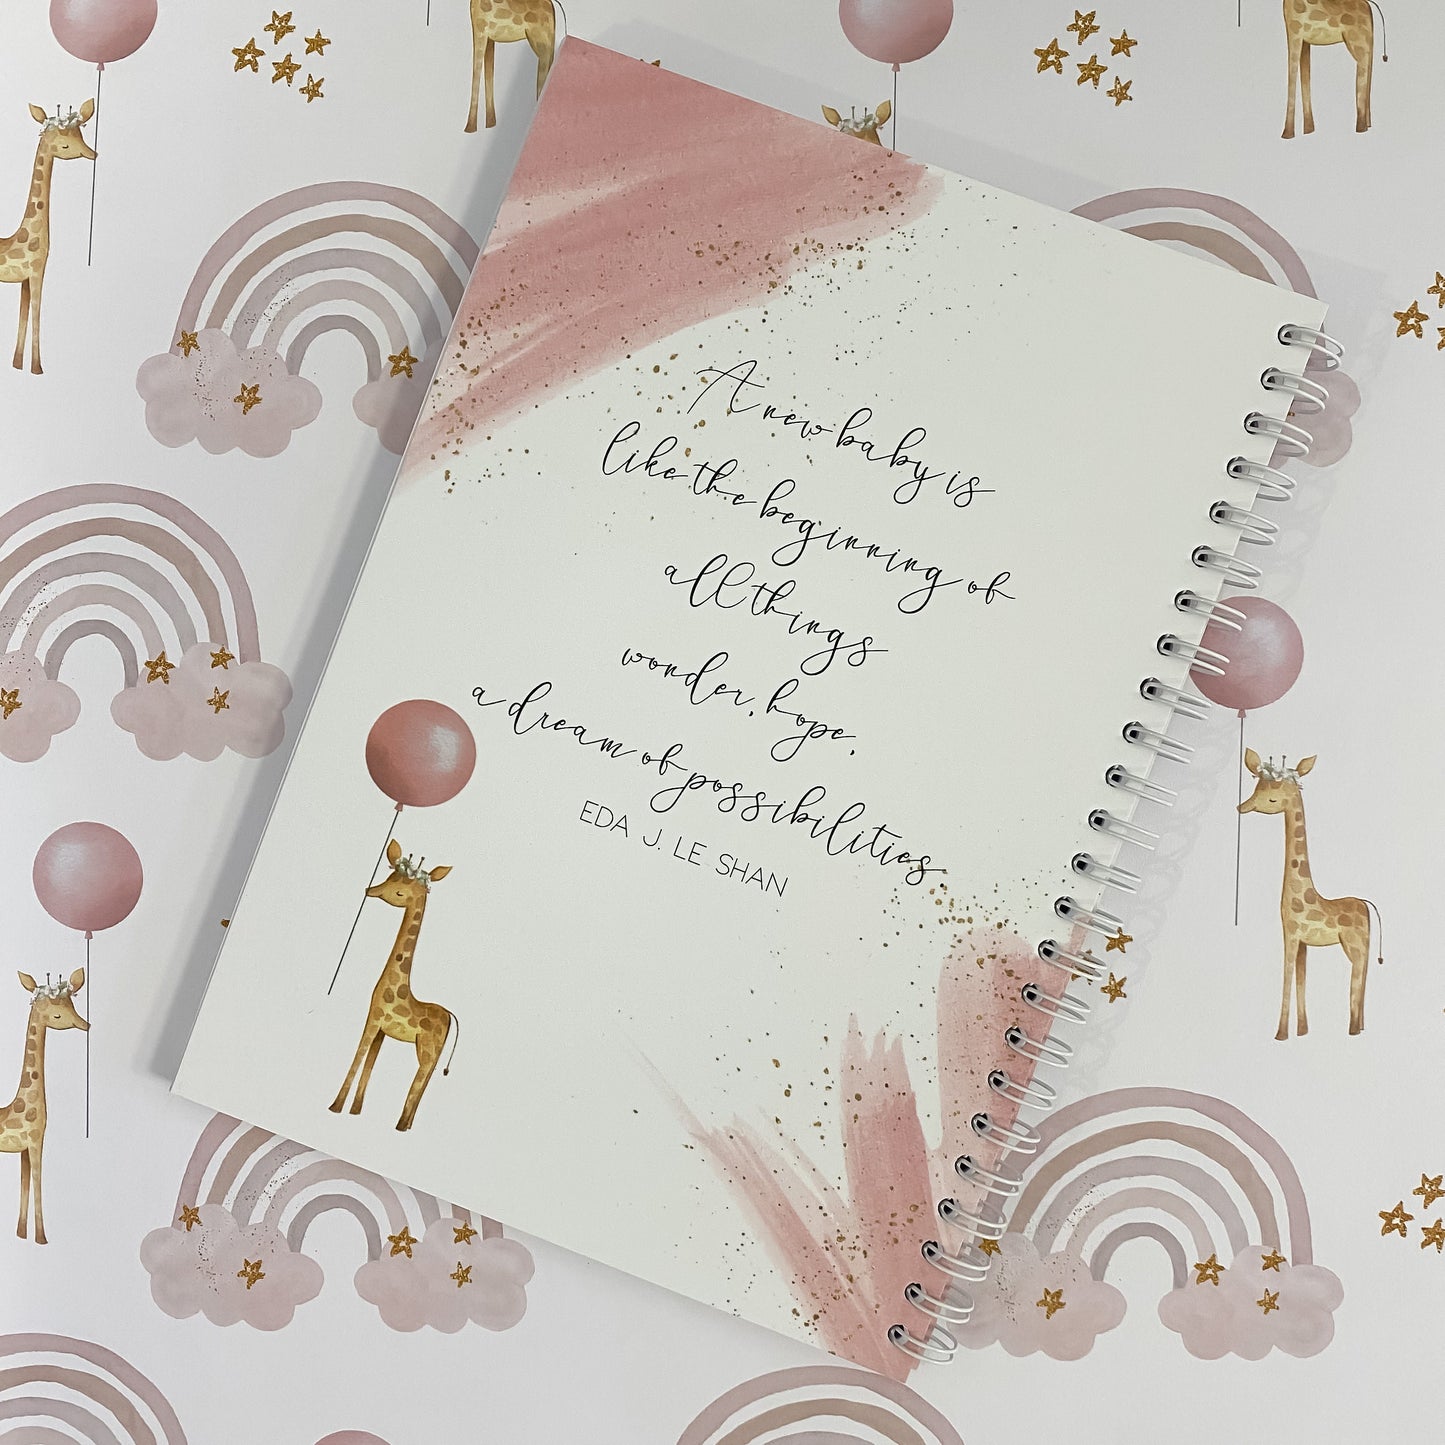 A new baby is
like the beginning of
all things
wonder, hope,
a dream of possibilities.
EDA J. LE SHAN